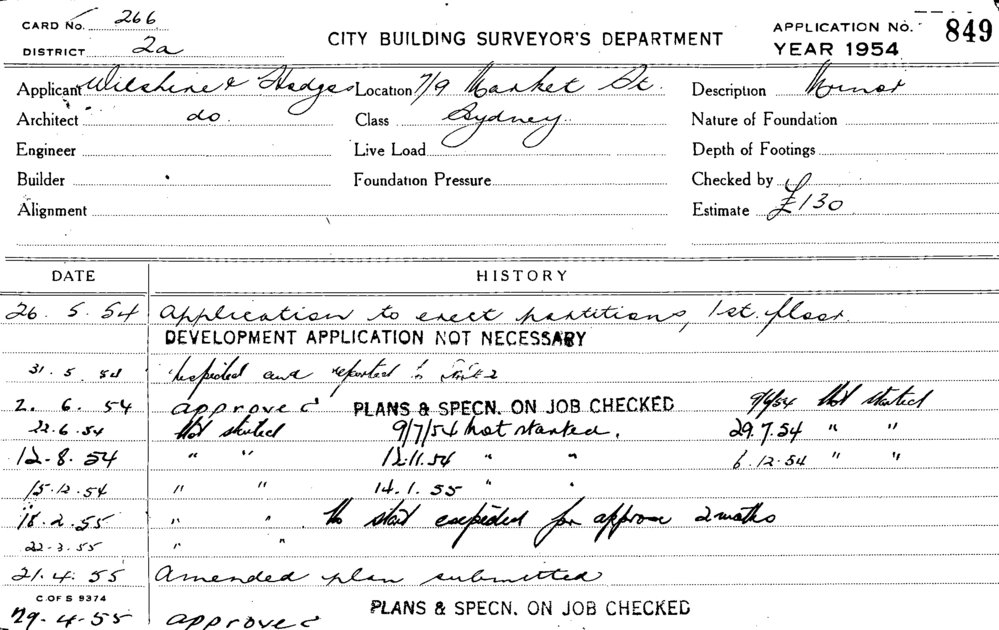 CARD No. 266
DISTRICT 2a
CITY BUILDING SURVEYOR'S DEPARTMENT
APPLICATION No. 849
YEAR 1954
Applicant Wilshire & Hodges Location 7/9 Market St. Description Minor
Architect do. Class Sydney. Nature of Foundation
Engineer Live Load Depth of Footings
Builder Foundation Pressure Checked by
Alignment Estimate £130
DATE HISTORY
26. 5. 54 Application to erect partitions, 1st. floor.
DEVELOPMENT APPLICATION NOT NECESSARY
31. 5. 54 Inspected and reported
2. 6. 54 approved PLANS & SPECN. ON JOB CHECKED 9/6/54 Not started
22.6.54 Not started 9/7/54 not started. 29.7.54 " "
12-8.54 " " 12.11.54 " " 6.12.54 " "
15.12.54 " " 14.1.55 " "
18.2.55 " " No start expected for approx 2 mths
22-3.55 " "
21.4.55 Amended plan submitted
C. OF S 9374
29-4-55 approved PLANS & SPECN. ON JOB CHECKED